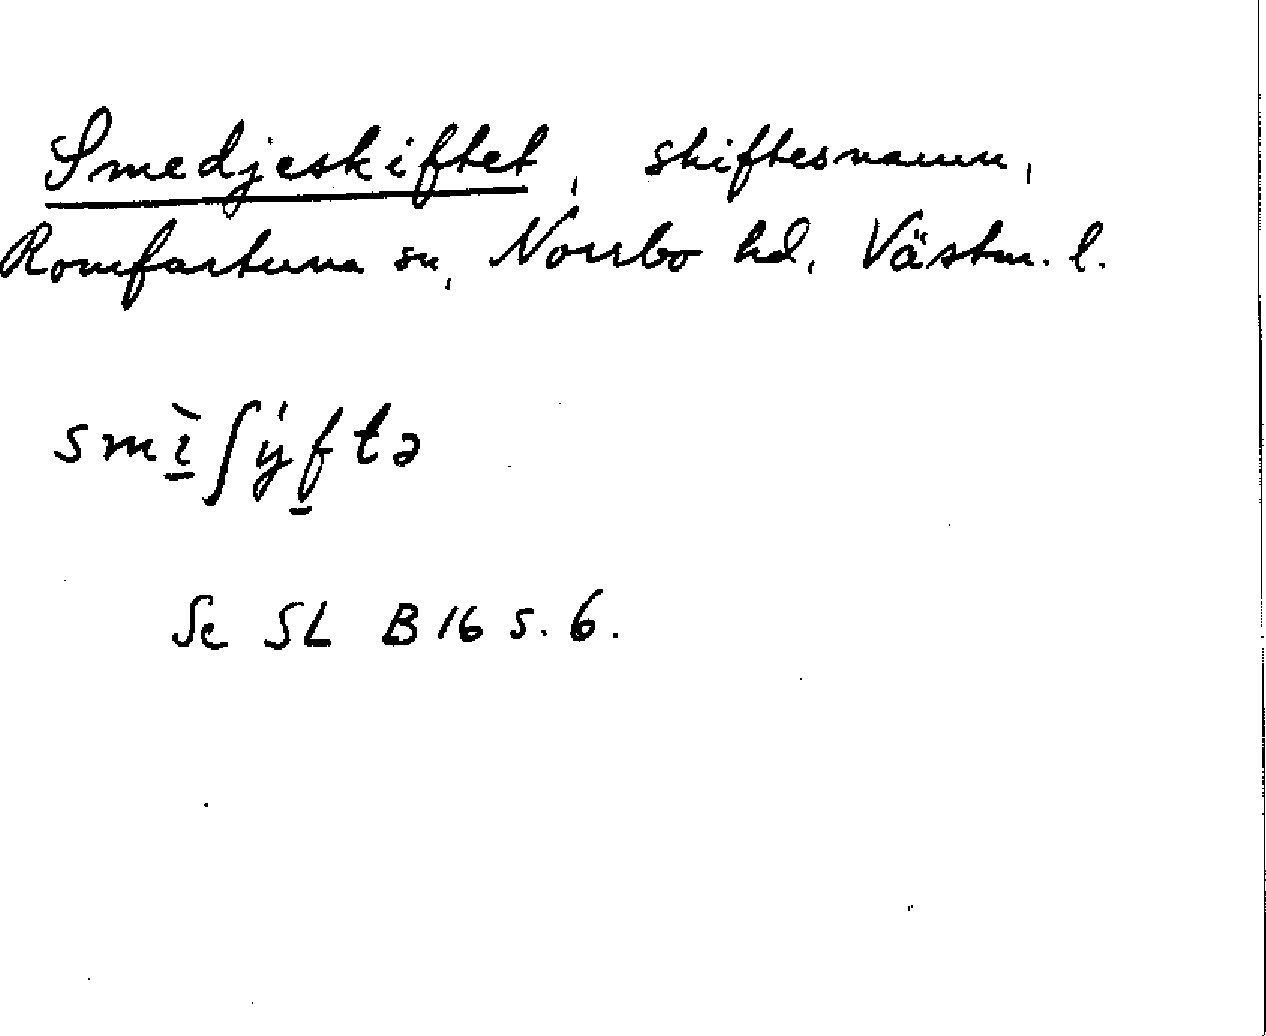 Smedjeskiftet, skiftesnamn,
Romfartuna sn, Norrbo hd, Västm. l.
smı̲̀ʃẏf̲tə
Se SL B 16 s. 6.